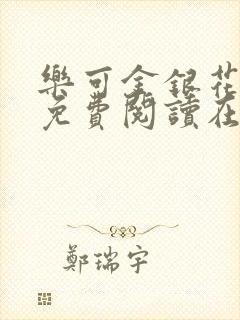 樂可金銀花
免費閱讀在
鄭瑞宇